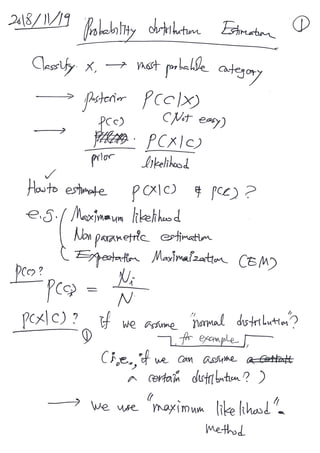 2018/11/19 Probability distribution Estimation ①
Classify x, → most probable category
→ posterior P(C|X)
P(C) (Not easy)
→ P(X|C)
prior likelihood
How to estimate P(X|C) & P(C)?
e.g. Maximum likelihood
Non parametric estimation
Expectation Maximaization (EM)
P(C)?
P(Ci) = Ni / N
P(X|C)? If we assume "normal distribution"?
① for example
(i.e., if we can assume
a certain distribution?)
→ we use "maximum likelihood"-
method